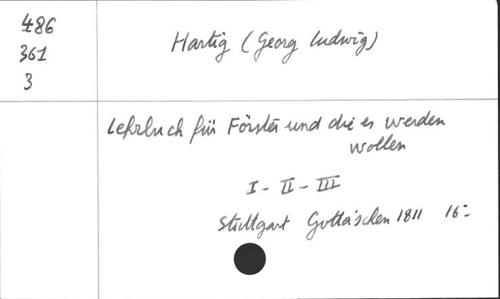 486
361
3
Hartig (Georg Ludwig)
Lehrbuch für Förster und die es werden
wollen
I - II - III
Stuttgart Gotta'schen 1811 16=